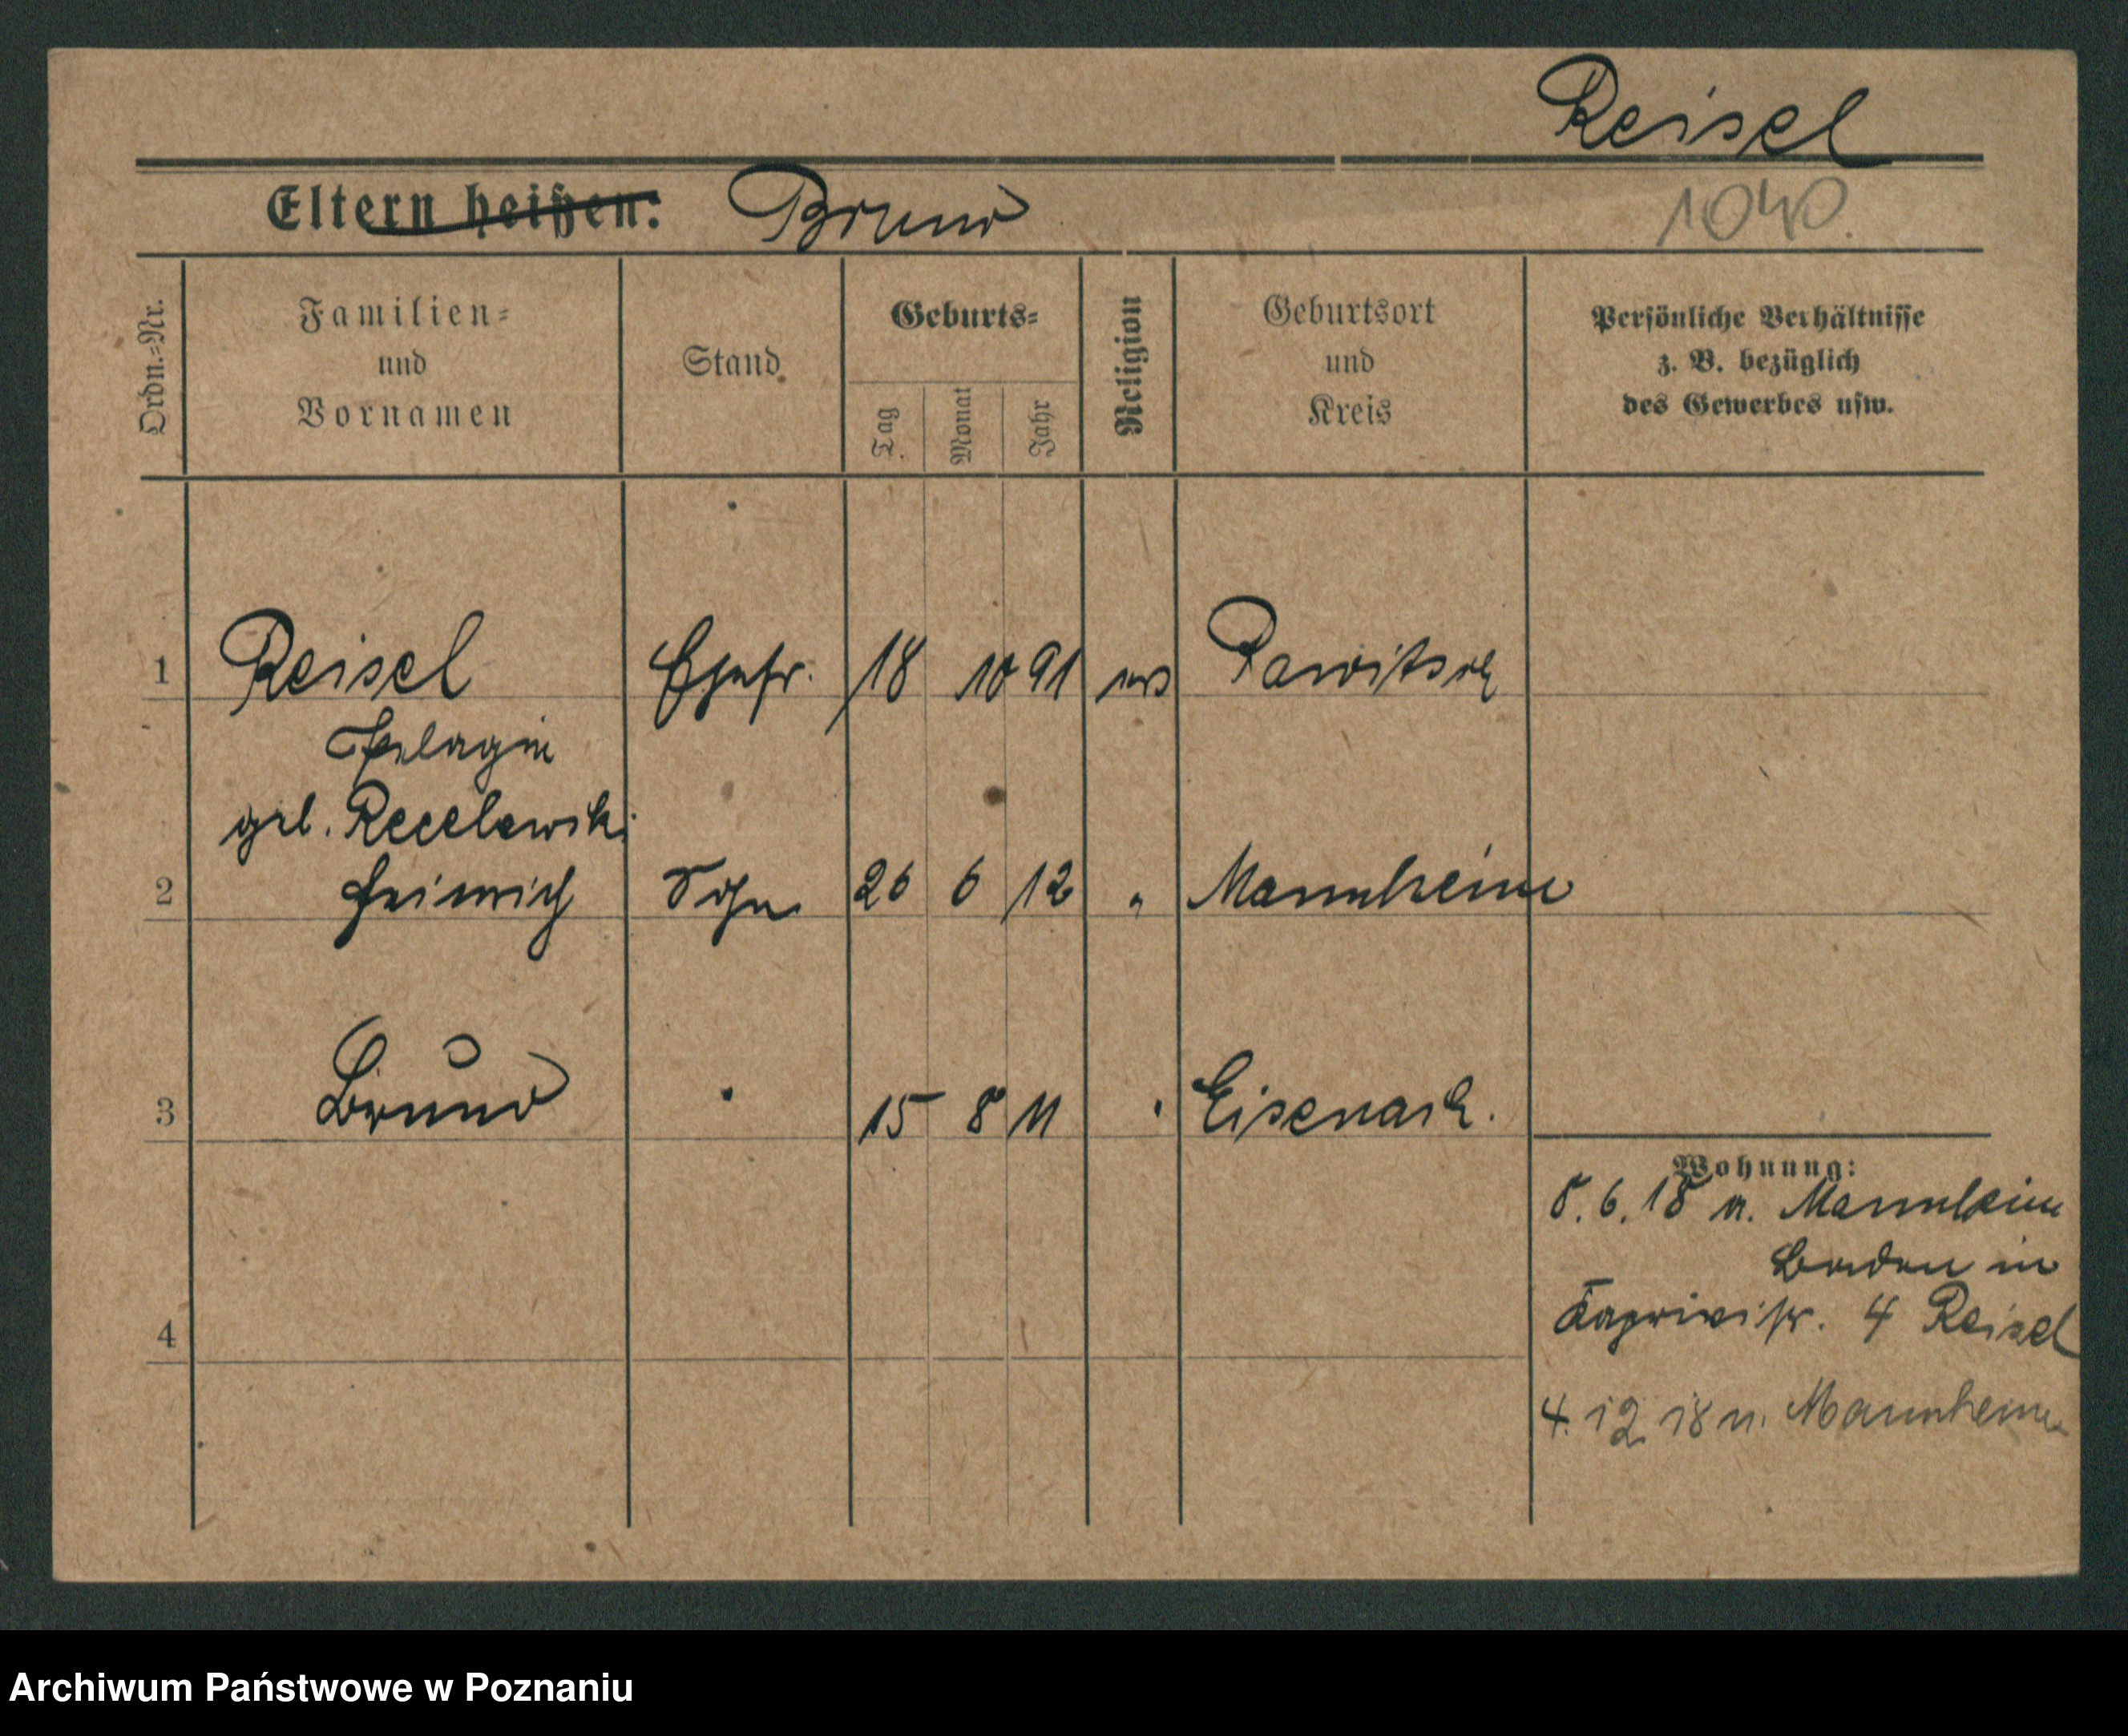 Reisel
Eltern heißen: Bruno
1040.
Ordn.=Nr.
Familien=
und
Vornamen
Stand
Geburts=
Tag
Monat
Jahr
Religion
Geburtsort
und
Kreis
Persönliche Verhältnisse
z. B. bezüglich
des Gewerbes usw.
1 Reisel Ehefr. 18 10 91 Rawitsch
Pelagia
geb.
2 Heinrich Sohn 26 6 12 " Mannheim
3 Bruno " 15 8 11 " Eisenach.
Wohnung:
8. 6. 18 n. Mannheim
Baden in
Kaprivistr. 4 Reisel
4
4. 12 18 n. Mannheim
Archiwum Państwowe w Poznaniu